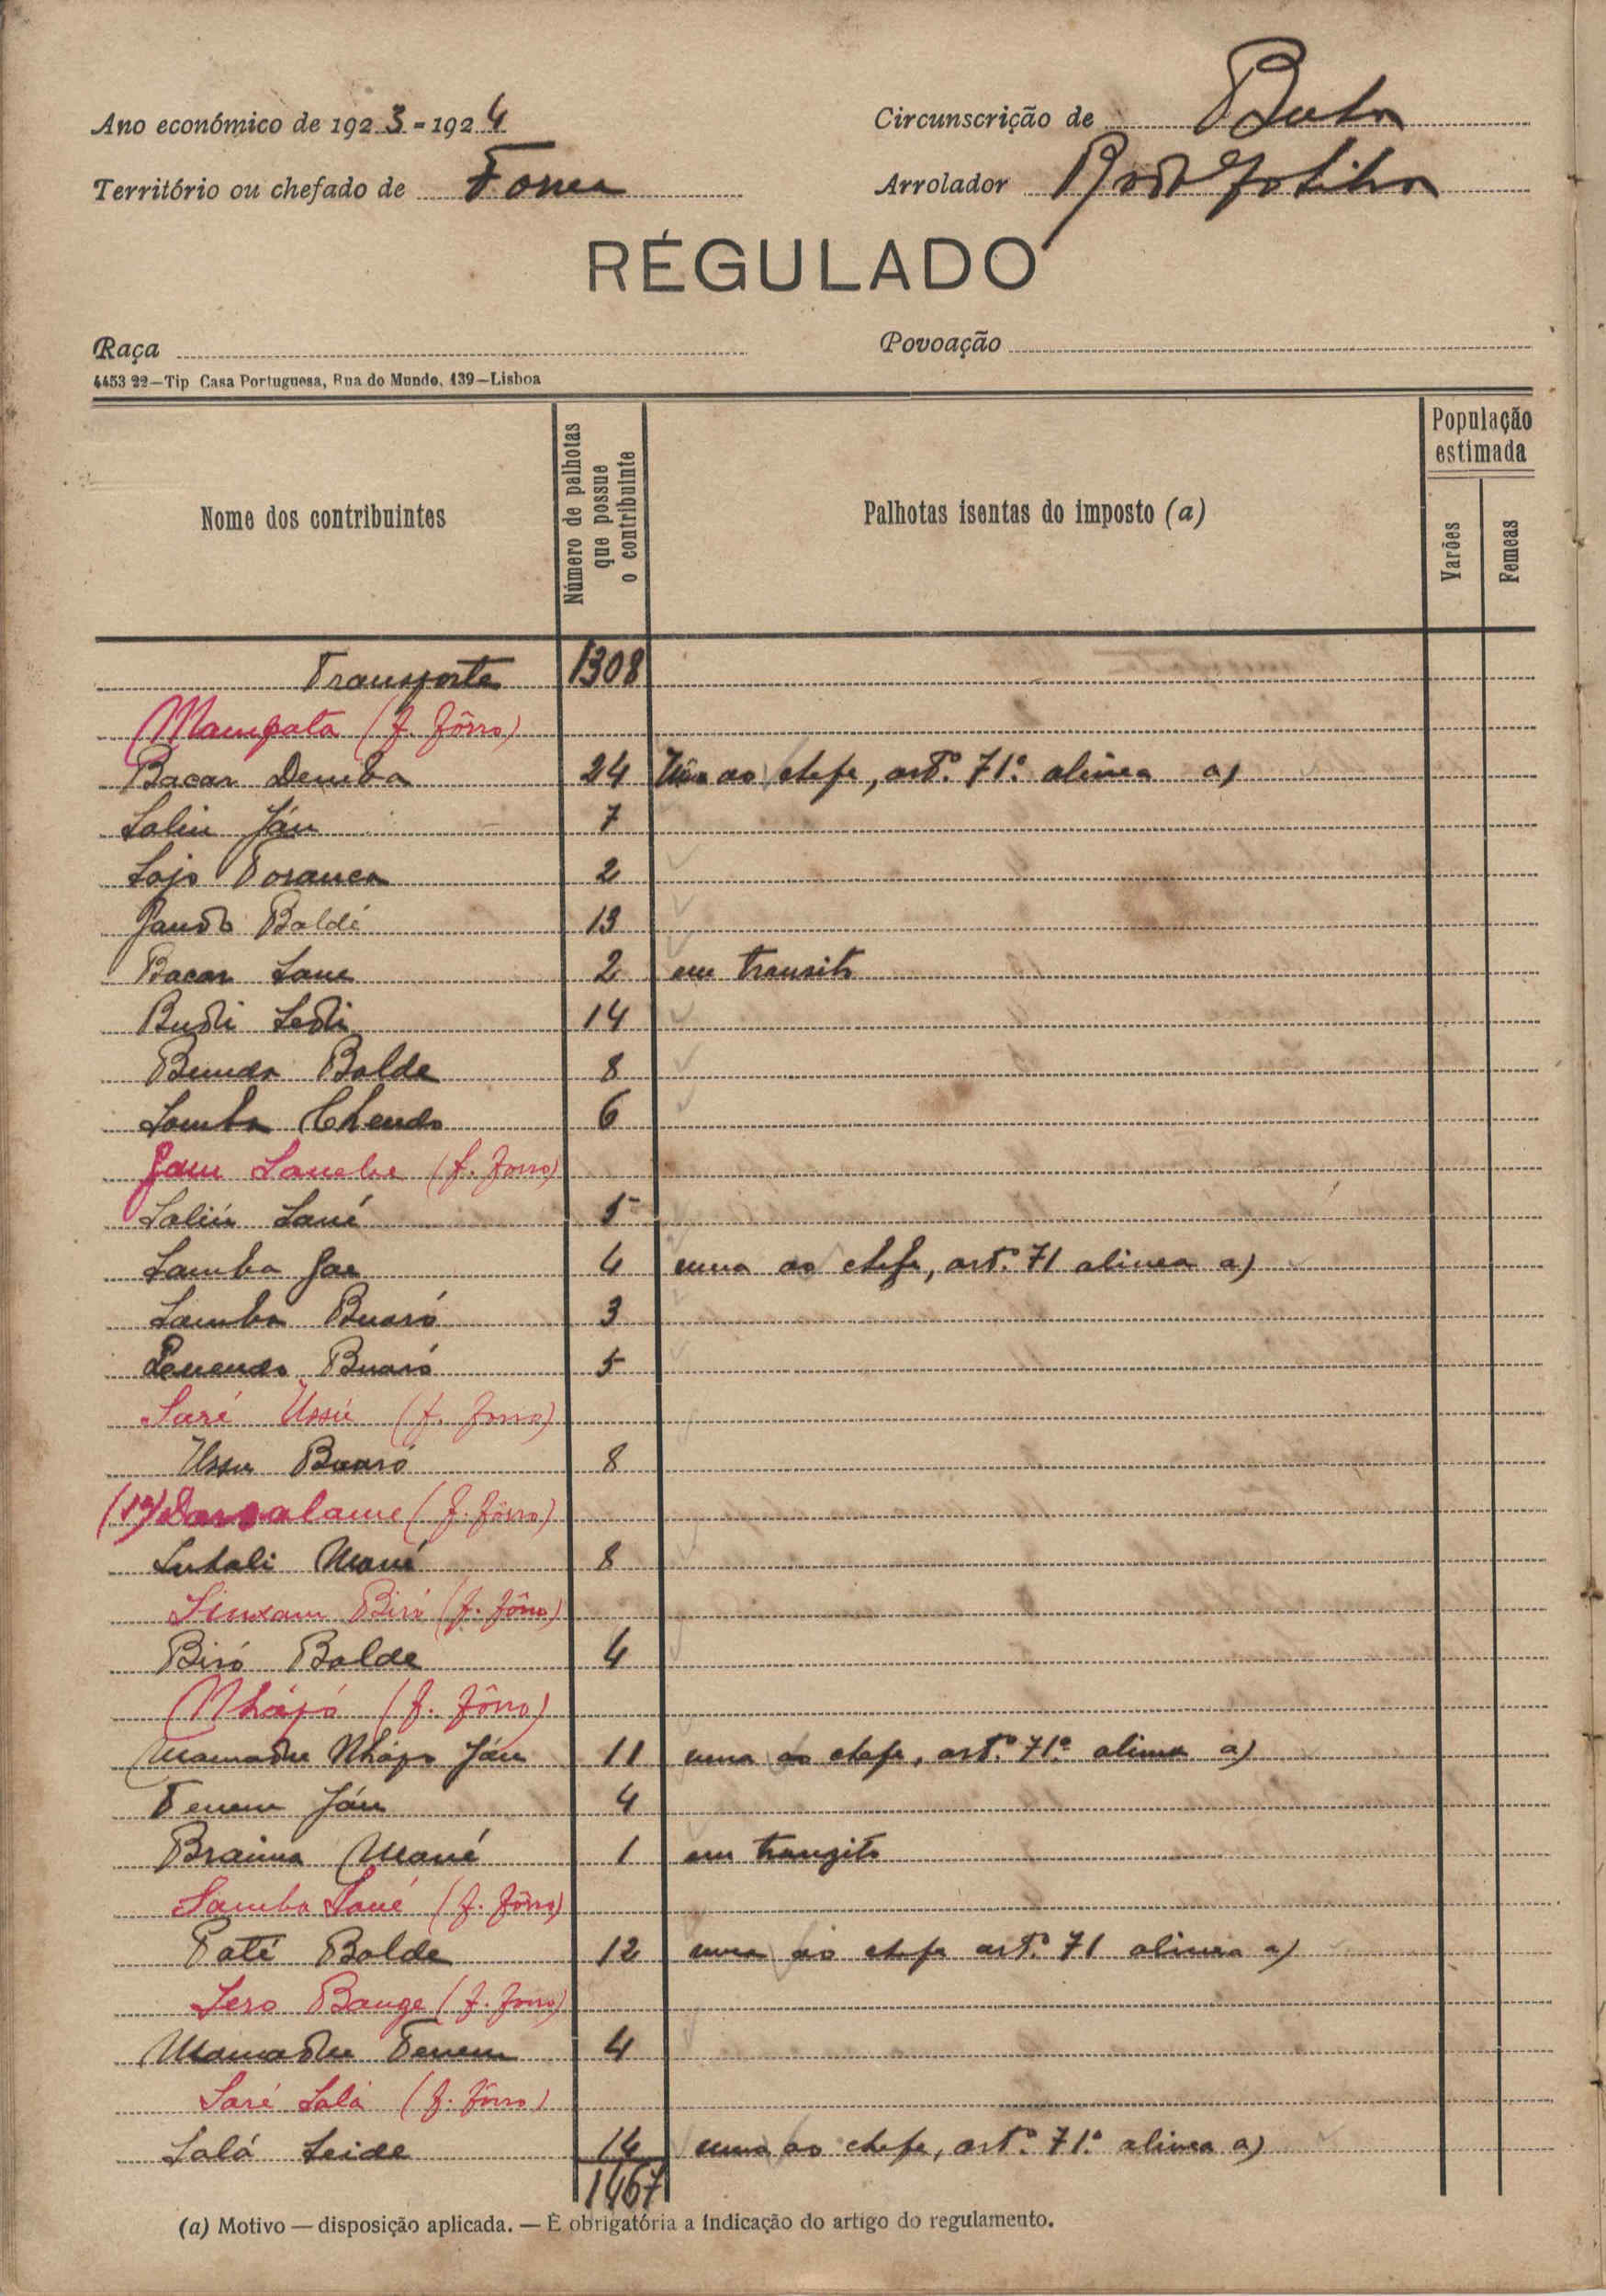 Ano económico de 1923-1924
Circunscrição de Buba
Território ou chefado de
Arrolador
RÉGULADO
Raça
Povoação
4453 22—Tip Casa Portuguesa, Rua do Mundo, 139—Lisboa
Nome dos contribuintes
Número de palhotas que possue o contribuinte
Palhotas isentas do imposto (a)
População estimada
Varões
Femeas
Transporte 1308
Mampata (f. fôrro)
Bacar Demba 24 Uma ao chefe, artº 71º alinea a)
Saliu Jáu 7
2
Baldé 13
Bacar Sane 2 em transito
14
Balde 8
Samba 6
(f. forro)
Saliú Sané 5
Samba 4 uma ao chefe, artº 71 alinea a)
Samba Buaró 3
Buaró 5
Saré Ussú (f. forro)
Ussu Buaró 8
(1ª) Darsalame (f. fôrro)
Mané 8
Biró (f. fôrro)
Biró Balde 4
Nhápó (f. fôrro)
Mamadu Nhápo Jáu 11 uma ao chefe, artº 71º alinea a)
Tenem Jáu 4
Braima Mané 1 em tranzito
Samba Sané (f. fôrro)
Paté Balde 12 uma ao chefe artº 71 alinea a)
(f. forro)
Mamadu Tenem 4
Saré Salá (f. fôrro)
Salá Seide 14 uma ao chefe, artº 71º alinea a)
1467
(a) Motivo — disposição aplicada. — É obrigatória a indicação do artigo do regulamento.